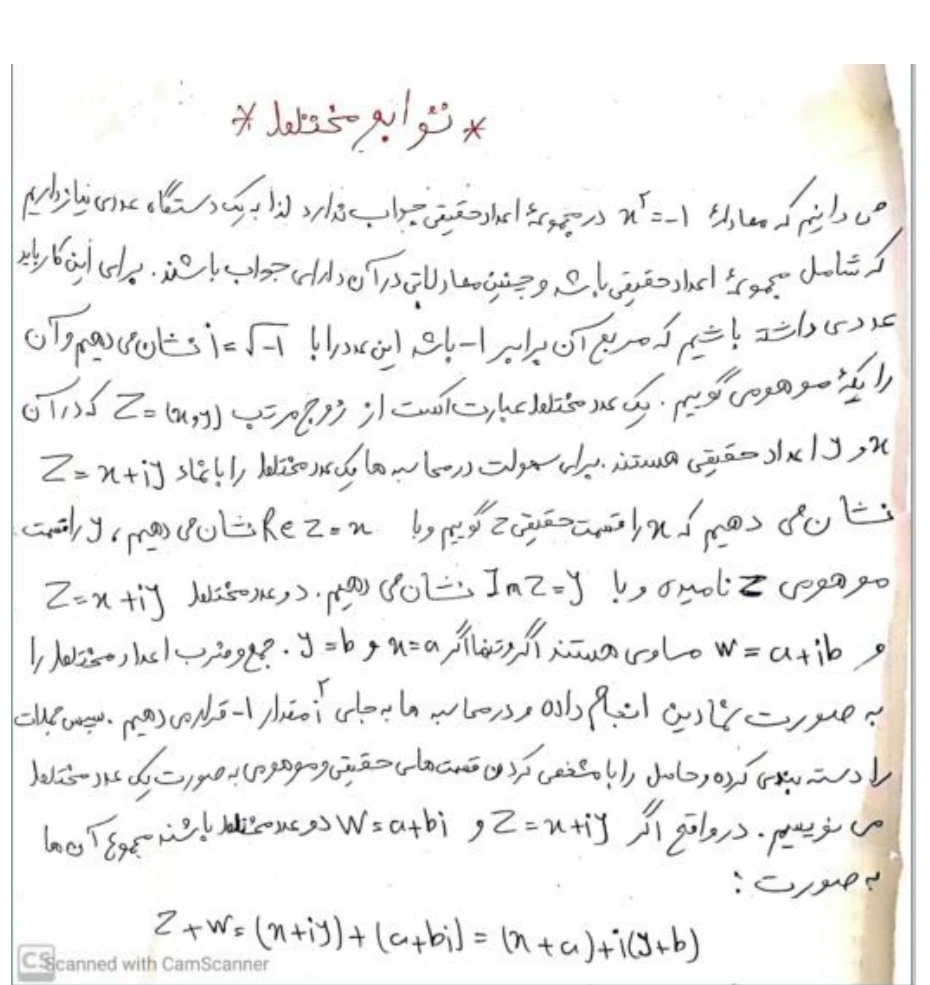 * توابع مختلط *
می دانیم که معادلهٔ x² = -1 در مجموعهٔ اعداد حقیقی جواب ندارد لذا به یک دستگاه عددی نیاز داریم
که شامل مجموعهٔ اعداد حقیقی باشد و چنین معادلاتی در آن دارای جواب باشند. برای این کار باید
عددی داشته باشیم که مربع آن برابر -1 باشد این عدد را با i = √-1 نشان می دهیم و آن
را یکهٔ موهومی گوییم. یک عدد مختلط عبارت است از زوج مرتب Z = (x,y) که در آن
x و y اعداد حقیقی هستند. برای سهولت در محاسبه ها یک عدد مختلط را با نماد Z = x+iy
نشان می دهیم که x را قسمت حقیقی z گوییم و با Re z = x نشان می دهیم، y را قسمت
موهومی Z نامیده و با Im z = y نشان می دهیم. دو عدد مختلط Z = x+iy
و w = a+ib مساوی هستند اگر و تنها اگر x = a و y = b. جمع و ضرب اعداد مختلط را
به صورت نمادین انجام داده و در محاسبه ها به جای i² مقدار -1 قرار می دهیم. سپس جملات
را دسته بندی کرده و حاصل را با مشخص کردن قسمت های حقیقی و موهومی به صورت یک عدد مختلط
می نویسیم. در واقع اگر Z = x+iy و W = a+bi دو عدد مختلط باشند مجموع آن ها
به صورت :
Z + W = (x+iy) + (a+bi) = (x+a) + i(y+b)
CS Scanned with CamScanner